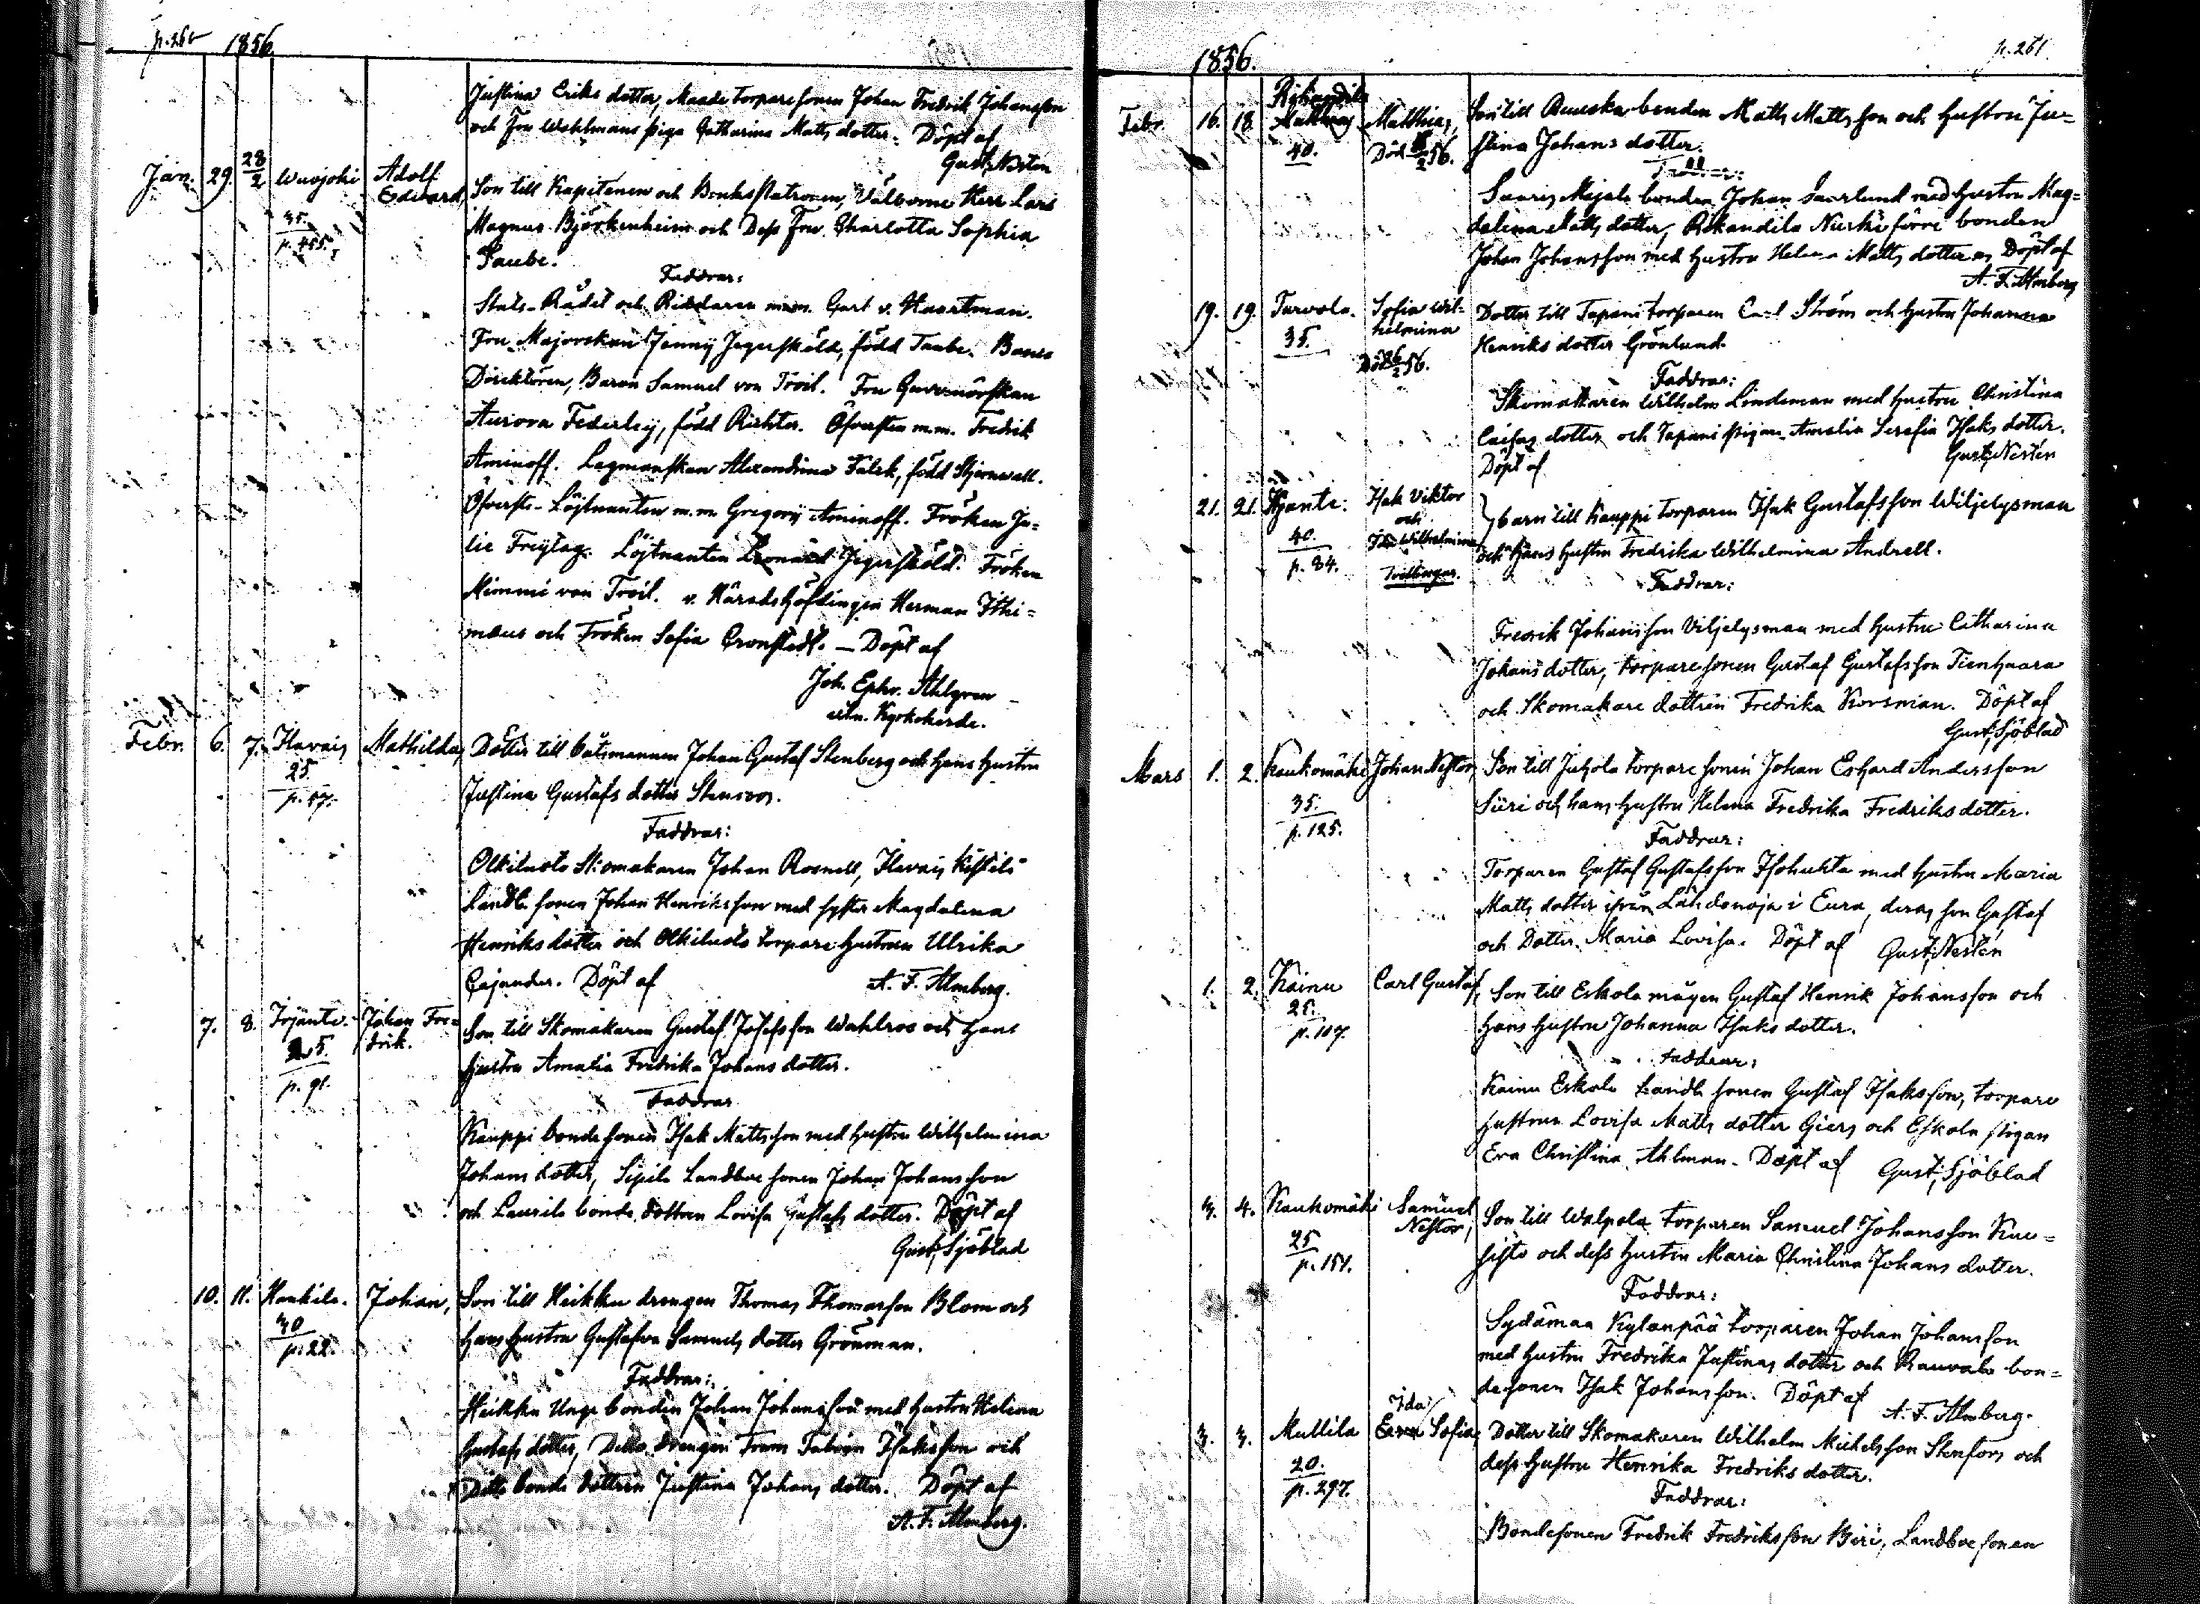 p. 260 1856.
Justina Eriks dotter, Maade torparesonen Johan Fredrik Johansson
och Fru Wahlmans piga Catharina Matts dotter. Döpt af
Gust. Nestén
Jan. 29. 28/2 Wuojoki Adolf Edvard,
35. p. 455.
Son till Kapitenen och Bruks Patronen, Välborne Herr Lars
Magnus Björkenheim och Dess Fru Charlotta Sophia
Taube.
Faddrar:
Stats-Rådet och Riddaren m.m. Carl v. Haartman.
Fru Majorskan Jenny Jegerskiöld, född Taube. Banco
Direktören, Baron Samuel von Troil. Fru Guvernörskan
Aurora Federley, född Richter. Öfversten m.m. Fredrik
Aminoff. Lagmanskan Alexandrina Falck, född Stjernvall.
Öfverste-Löjtnanten m.m. Gregorij Aminoff. Fröken Ju-
lie Freijtag. Löjtnanten Leonard Jägerskiöld. Fröken
Mimmi von Troil. v. Häradshöfdingen Herman Ithi-
maeus och Fröken Sofia Cronstedt. — Döpt af
Joh. Ephr. Ahlgren
Kyrkoherde.
Febr. 6. 7. Ilavais Mathilda,
25. p. 57.
Dotter till båtsmannen Johan Gustaf Stenberg och hans hustru
Justina Gustafs dotter Stenroos.
Faddrar:
Olkiluoto Skomakaren Johan Rosnell, Ilavais Kistili
Landb. sonen Johan Henriksson med syster Magdalena
Henriks dotter och Olkiluoto torpare hustrun Ulrika
Cajander. Döpt af A. F. Almberg.
7. 8. Irjante. Johan Fre-
drik.
25. p. 91.
Son till Skomakaren Gustaf Josefsson Wahlroos och hans
hustru Amalia Fredrika Johans dotter.
Faddrar
Kauppi bondesonen Isak Mattsson med hustru Wilhelmina
Johans dotter, Sipilä Landboe sonen Johan Johansson
och Laurila bonde dottren Lovisa Gustafs dotter. Döpt af
Gust. Sjöblad
10. 11. Hankila. Johan,
30 p. 22.
Son till Heikku drengen Thomas Thomasson Blom och
hans hustru Gustafva Samuels dotter Grönman.
Faddrar:
Heikku Unge bonden Johan Johansson med hustru Helena
Gustafs dotter, Ditto drengen Frans Fabian Isaksson och
Ditto bonde dottren Justina Johans dotter. Döpt af
A. F. Almberg.
1856. p. 261.
Febr. 16. 18. Matthias,
40. Död 56.
Son till bonden Matts Mattsson och hustru Ju-
stina Johans dotter.
Faddrar:
bonden Johan Saarlund med hustru Mag-
dalena Matts dotter, Rikandila förre bonden
Johan Johansson med hustru Helena Matts dotter. Döpt af
A. F. Almberg
19. 19. Turvola. Sofia Wil-
helmina
35. Död 56.
Dotter till Tapani torparen Carl Ström och hustru Johanna
Henriks dotter Grönlund.
Faddrar:
Skomakaren Wilhelm Lindeman med hustru Christina
dotter och Tapani pigan Amalia Serafia Isaks dotter.
Döpt af Gust. Nestén
21. 21. Irjante: Isak Viktor
och
Ida Wilhelmina
Tvillingar.
40. p. 84.
barn till Kauppi torparen Isak Gustafsson Wiljelysman
och hans hustru Fredrika Wilhelmina Andrell.
Faddrar:
Fredrik Johansson Viljelysman med hustru Catharina
Johans dotter, torpare sonen Gustaf Gustafsson Tienhaara
och Skomakare dottren Fredrika Korsman. Döpt af
Gust. Sjöblad
Mars 1. 2. Kaukomäki Johan Nestor
35. p. 125.
Son till Juhola torpare sonen Johan Erhard Andersson
Siiri och hans hustru Helena Fredrika Fredriks dotter.
Faddrar:
Torparen Gustaf Gustafsson Isohuhta med hustru Maria
Matts dotter ifrån Lähdenoja i Eura, deras son Gustaf
och Dotter Maria Lovisa. Döpt af Gust. Nestén
1. 2. Kainu Carl Gustaf,
25. p. 107.
Son till Eskola mågen Gustaf Henrik Johansson och
hans hustru Johanna Isaks dotter.
Faddrar:
Kainu Eskola Landb. sonen Gustaf Isaksson, torpare
hustrun Lovisa Matts dotter Giers och Eskola pigan
Eva Christina Ahlman. Döpt af Gust. Sjöblad
3. 4. Kaukomäki Samuel
Nestor,
25 p. 151.
Son till Walpola torparen Samuel Johansson Kuu-
sisto och dess hustru Maria Christina Johans dotter.
Faddrar:
Sydämaa Kylänpää torparen Johan Johansson
med hustru Fredrika Justinas dotter och Rauvala bon-
desonen Isak Johansson. Döpt af
A. F. Almberg.
3. 3. Mullila Ida
Sofia,
20. p. 297.
Dotter till Skomakaren Wilhelm Michelsson Stenfors och
dess hustru Henrika Fredriks dotter.
Faddrar:
Bondesonen Fredrik Fredriksson Biri, Landboe sonen